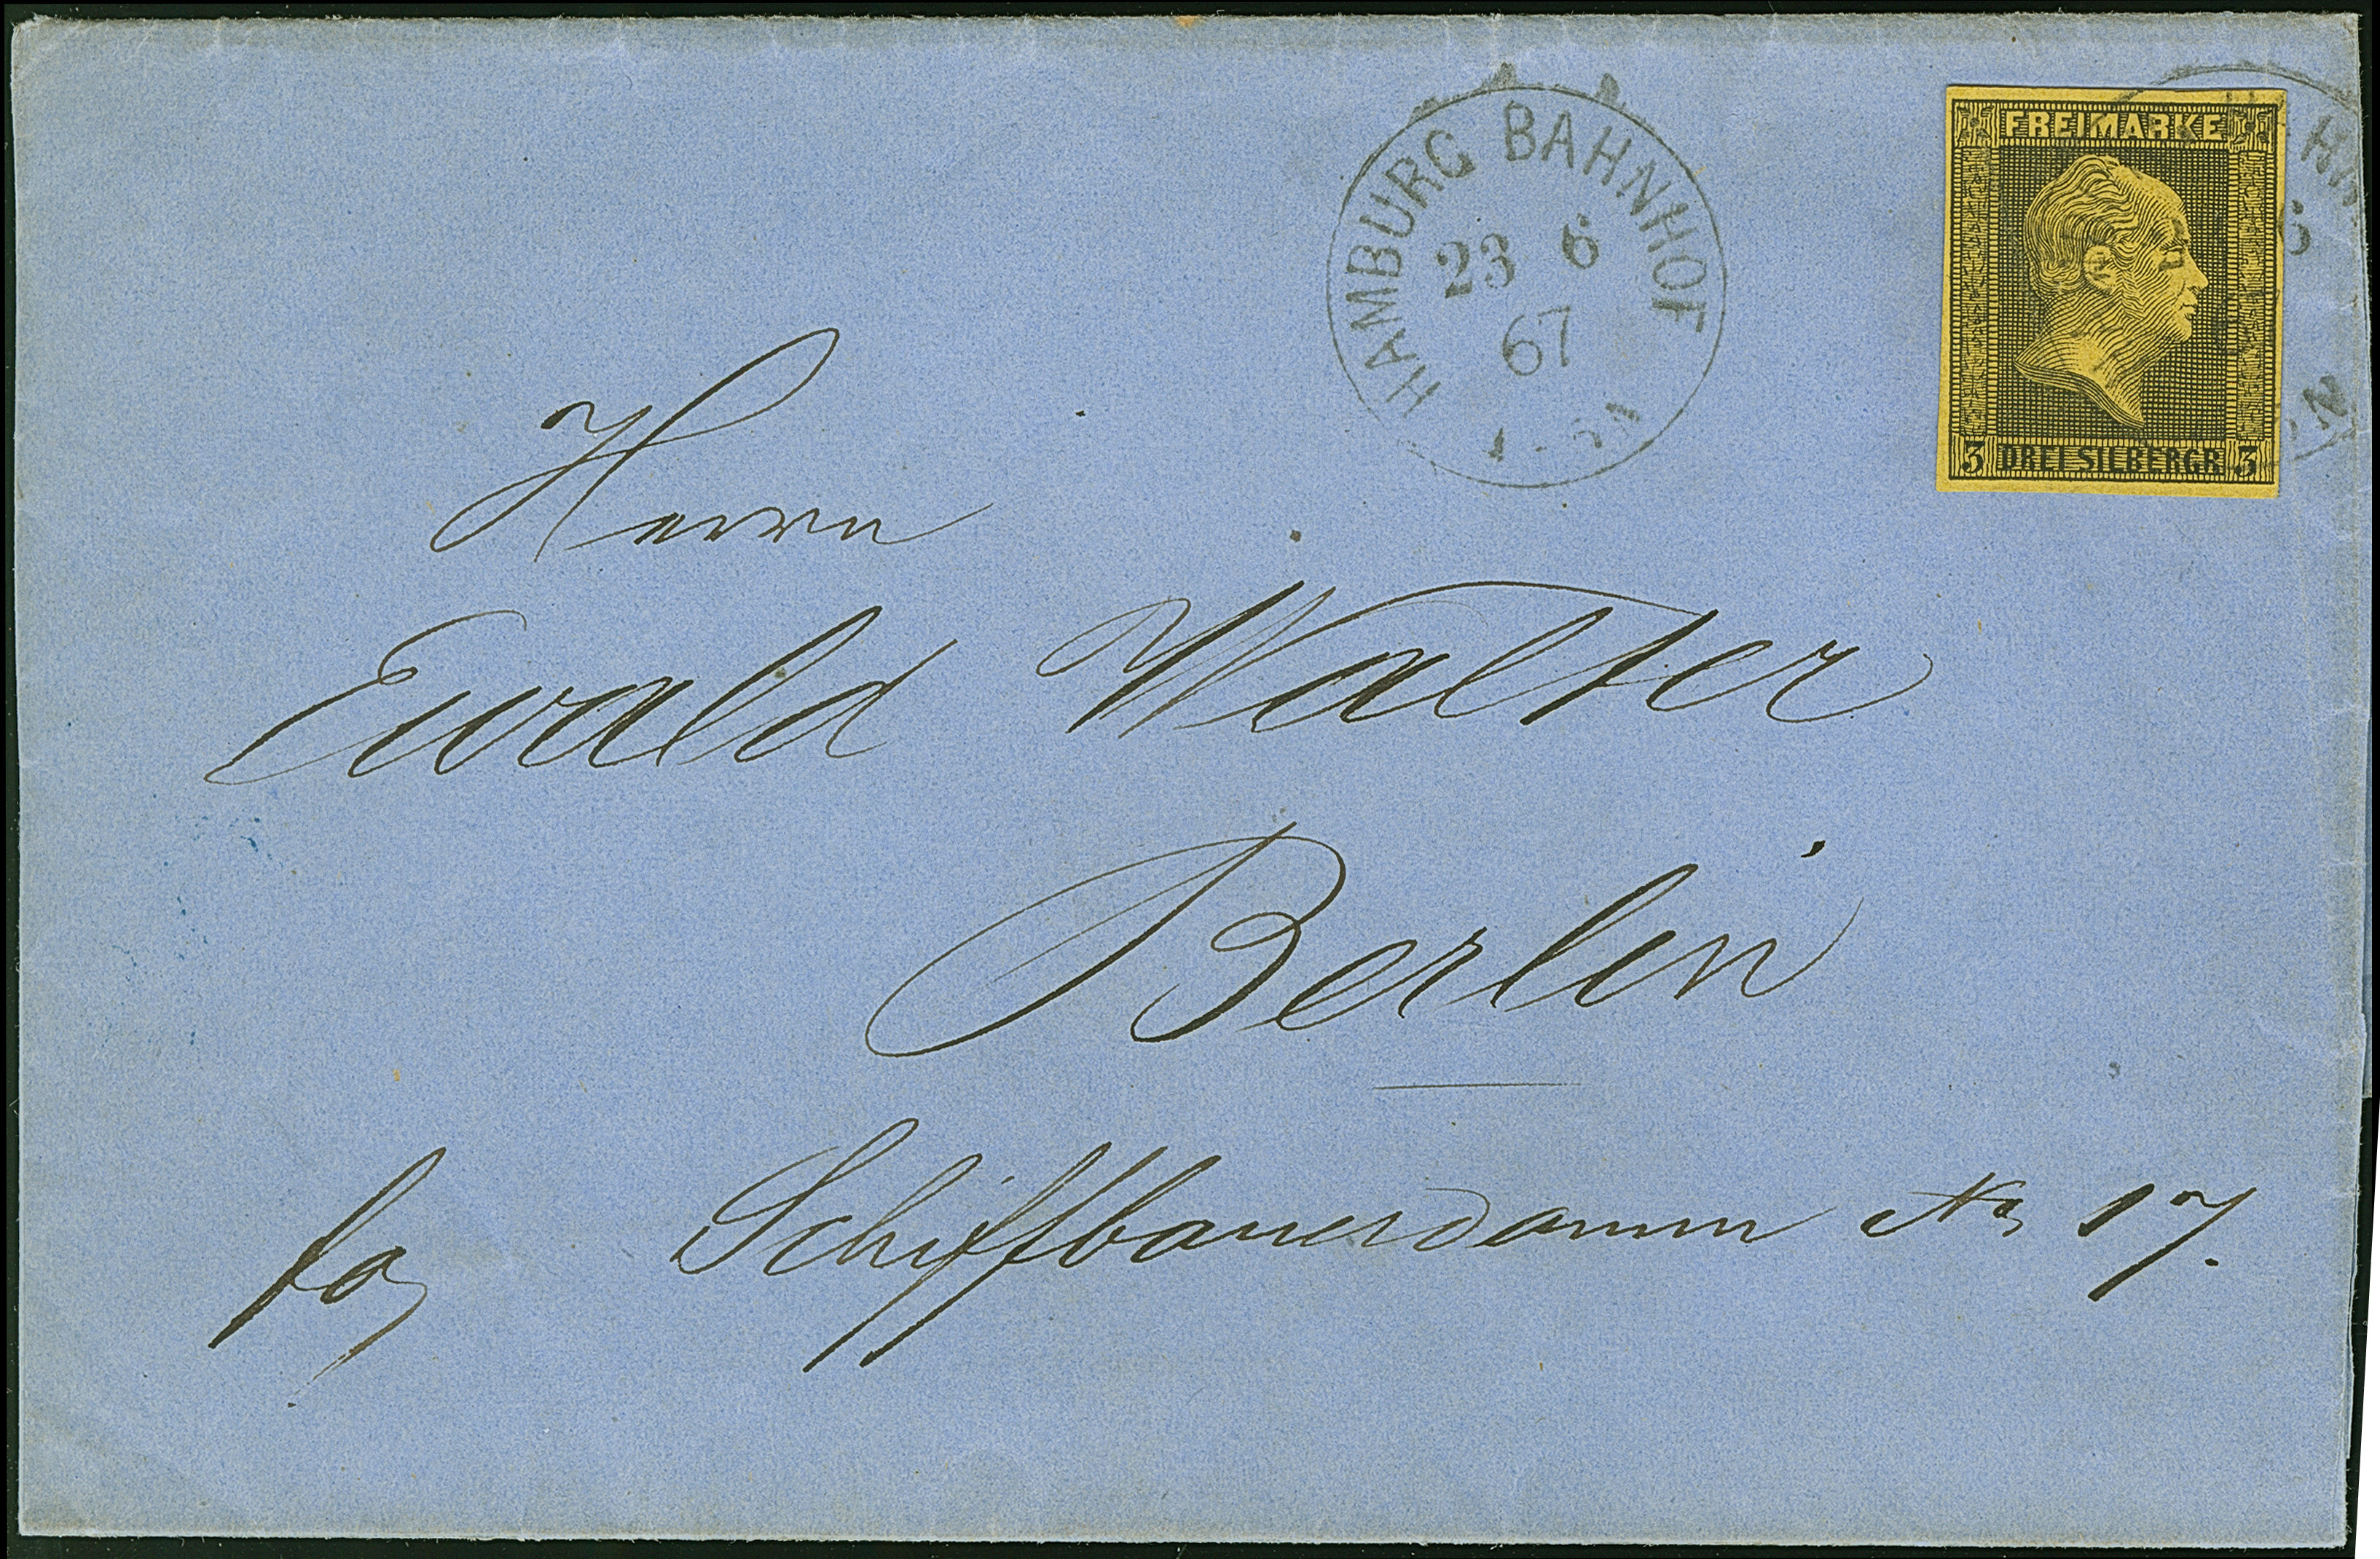 HAMBURG BAHNHOF
23 6
67
FREIMARKE
3 DREI SILBERGR 3
Herrn
Ewald Walter
Berlin
Schiffbauerdamm No 17.